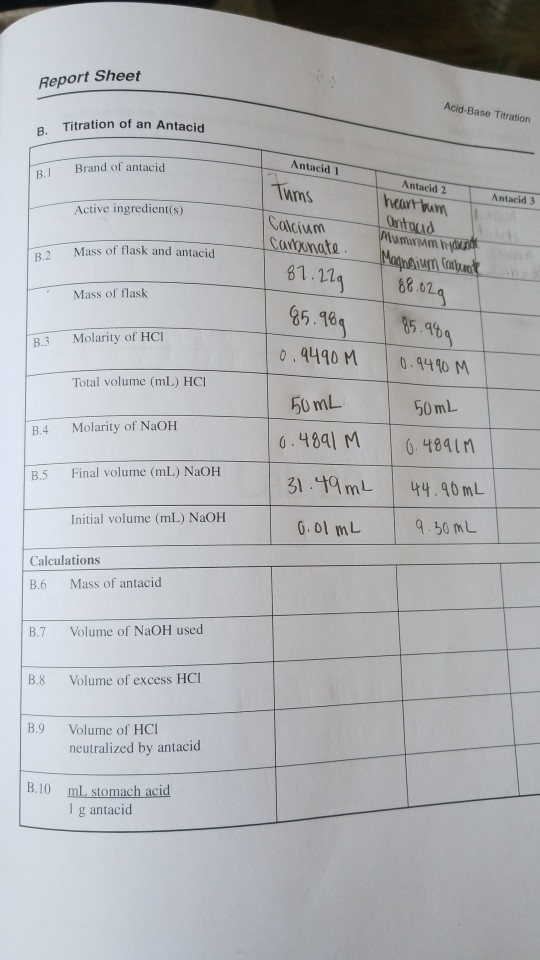 Report Sheet
Acid-Base Titration
B. Titration of an Antacid
Antacid 1 Antacid 2 Antacid 3
B.1 Brand of antacid Tums heart burn antacid
Active ingredient(s) Calcium Carbonate. Aluminum hydroxide Magnesium Carbonate
B.2 Mass of flask and antacid 87.22g 88.02g
Mass of flask 85.98g 85.98g
B.3 Molarity of HCl 0.9490 M 0.9490 M
Total volume (mL) HCl 50mL 50mL
B.4 Molarity of NaOH 0.4891 M 0.4891M
B.5 Final volume (mL) NaOH 31.49mL 44.90mL
Initial volume (mL) NaOH 0.01 mL 9.30 mL
Calculations
B.6 Mass of antacid
B.7 Volume of NaOH used
B.8 Volume of excess HCl
B.9 Volume of HCl
neutralized by antacid
B.10 mL stomach acid
1 g antacid